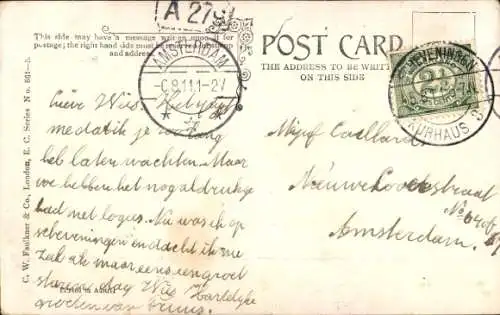 A 27
This side may have a message written upon it for
postage; the right hand side must be reserved
and address
POST CARD
THE ADDRESS TO BE WRITTEN
ON THIS SIDE
AMSTERDAM
SCHEVENINGEN
KURHAUS
2½
C. W. Faulkner & Co., London, E. C. Series No. 861
Lieve Wies, Het spijt
me dat ik je zo lang
heb laten wachten. Maar
we hebben het nogal druk ge-
had met logés. Nu was ik op
Scheveningen en dacht ik me
zal ik maar eens een groet
Wies Hartelijke
groeten van Truus.
Mejuf
Nieuwe Looiersstraat
Amsterdam.